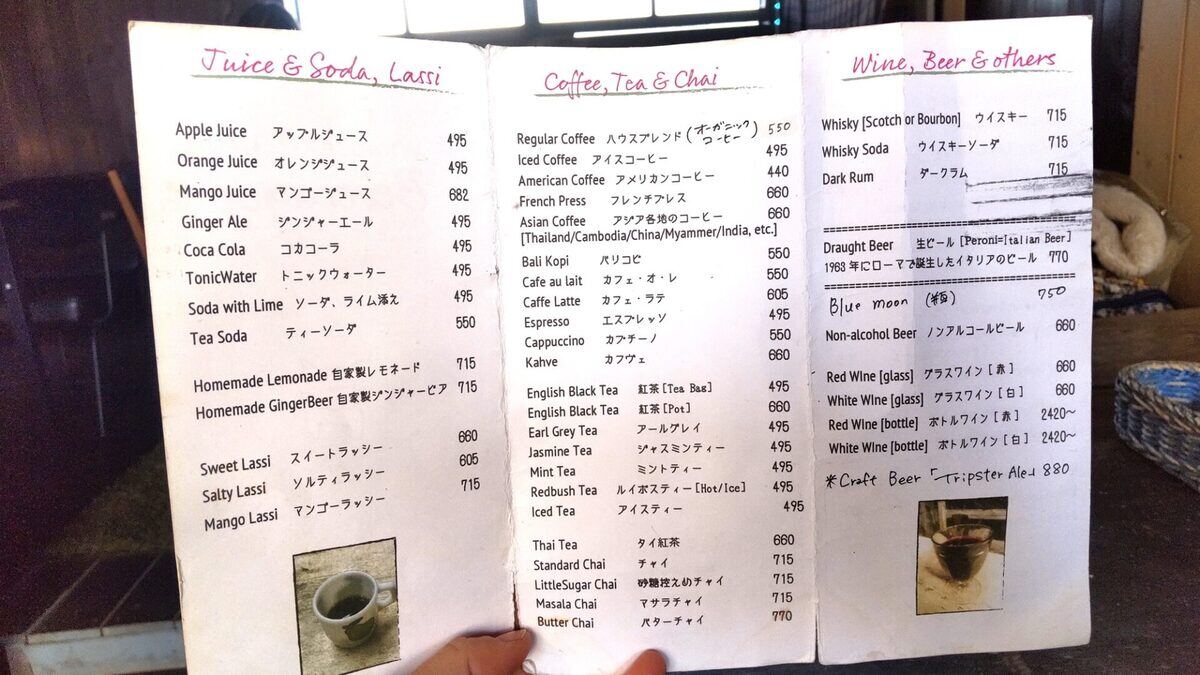 Juice & Soda, Lassi
Apple Juice アップルジュース 495
Orange Juice オレンジジュース 495
Mango Juice マンゴージュース 682
Ginger Ale ジンジャーエール 495
Coca Cola コカコーラ 495
TonicWater トニックウォーター 495
Soda with Lime ソーダ、ライム添え 495
Tea Soda ティーソーダ 550
Homemade Lemonade 自家製レモネード 715
Homemade GingerBeer 自家製ジンジャービア 715
Sweet Lassi スイートラッシー 660
Salty Lassi ソルティラッシー 605
Mango Lassi マンゴーラッシー 715
Coffee, Tea & Chai
Regular Coffee ハウスブレンド (オーガニックコーヒー) 550
Iced Coffee アイスコーヒー 495
American Coffee アメリカンコーヒー 440
French Press フレンチプレス 660
Asian Coffee アジア各地のコーヒー 660
[Thailand/Cambodia/China/Myammer/India, etc.]
Bali Kopi バリコピ 550
Cafe au lait カフェ・オ・レ 550
Caffe Latte カフェ・ラテ 605
Espresso エスプレッソ 495
Cappuccino カプチーノ 550
Kahve カフヴェ 660
English Black Tea 紅茶[Tea Bag] 495
English Black Tea 紅茶[Pot] 660
Earl Grey Tea アールグレイ 495
Jasmine Tea ジャスミンティー 495
Mint Tea ミントティー 495
Redbush Tea ルイボスティー[Hot/Ice] 495
Iced Tea アイスティー 495
Thai Tea タイ紅茶 660
Standard Chai チャイ 715
LittleSugar Chai 砂糖控えめチャイ 715
Masala Chai マサラチャイ 715
Butter Chai バターチャイ 770
Wine, Beer & others
Whisky [Scotch or Bourbon] ウイスキー 715
Whisky Soda ウイスキーソーダ 715
Dark Rum ダークラム 715
Draught Beer 生ビール [Peroni=Italian Beer]
1963年にローマで誕生したイタリアのビール 770
Blue moon (瓶) 750
Non-alcohol Beer ノンアルコールビール 660
Red Wine [glass] グラスワイン [赤] 660
White Wine [glass] グラスワイン [白] 660
Red Wine [bottle] ボトルワイン [赤] 2420~
White Wine [bottle] ボトルワイン [白] 2420~
*Craft Beer「Tripster Ale」880